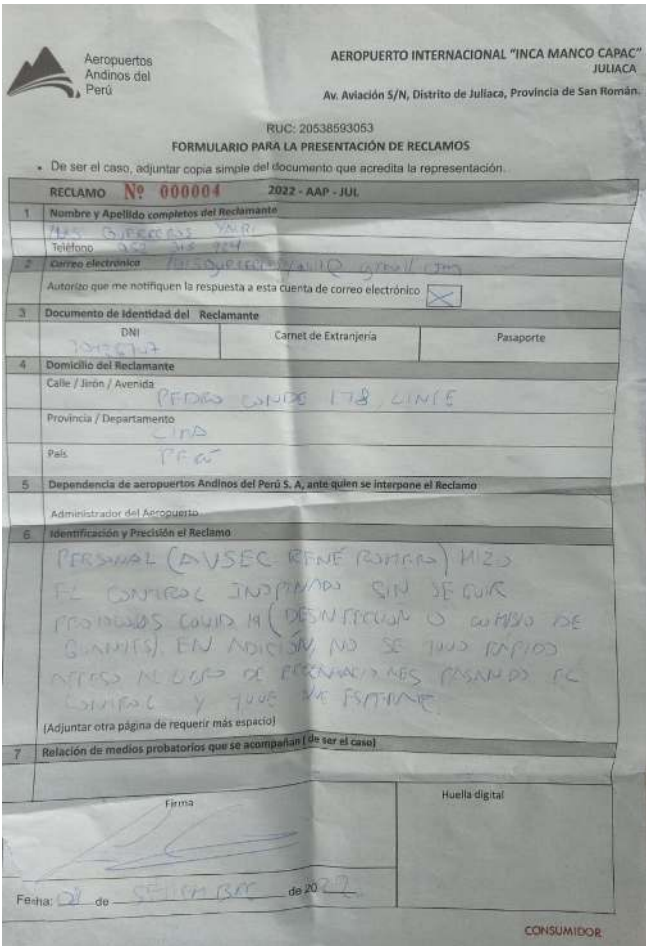 Aeropuertos
Andinos del
Perú
AEROPUERTO INTERNACIONAL "INCA MANCO CAPAC"
JULIACA
Av. Aviación S/N, Distrito de Juliaca, Provincia de San Román.
RUC: 20538593053
FORMULARIO PARA LA PRESENTACIÓN DE RECLAMOS
• De ser el caso, adjuntar copia simple del documento que acredita la representación.
RECLAMO Nº 000004 2022 - AAP - JUL
1 Nombre y Apellido completos del Reclamante
Teléfono
2 Correo electrónico @gmail.com
Autorizo que me notifiquen la respuesta a esta cuenta de correo electrónico
3 Documento de Identidad del Reclamante
DNI Carnet de Extranjería Pasaporte
4 Domicilio del Reclamante
Calle / Jirón / Avenida
PEDRO CONDE 178
Provincia / Departamento
LIMA
País
PERÚ
5 Dependencia de aeropuertos Andinos del Perú S. A, ante quien se interpone el Reclamo
Administrador del Aeropuerto
6 Identificación y Precisión el Reclamo
PERSONAL (AVSEC RENÉ ROMERO) HIZO
EL CONTROL INOPINADO SIN SEGUIR
PROTOCOLOS COVID 19 (DESINFECCION O CAMBIO DE
GUANTES). EN ADICIÓN, NO SE TUVO RAPIDO
ACCESO AL DE PASANDO EL
CONTROL Y TUVE QUE ESPERAR
(Adjuntar otra página de requerir más espacio)
7 Relación de medios probatorios que se acompañan (de ser el caso)
Firma
Huella digital
Fecha: de SETIEMBRE de 2022
CONSUMIDOR